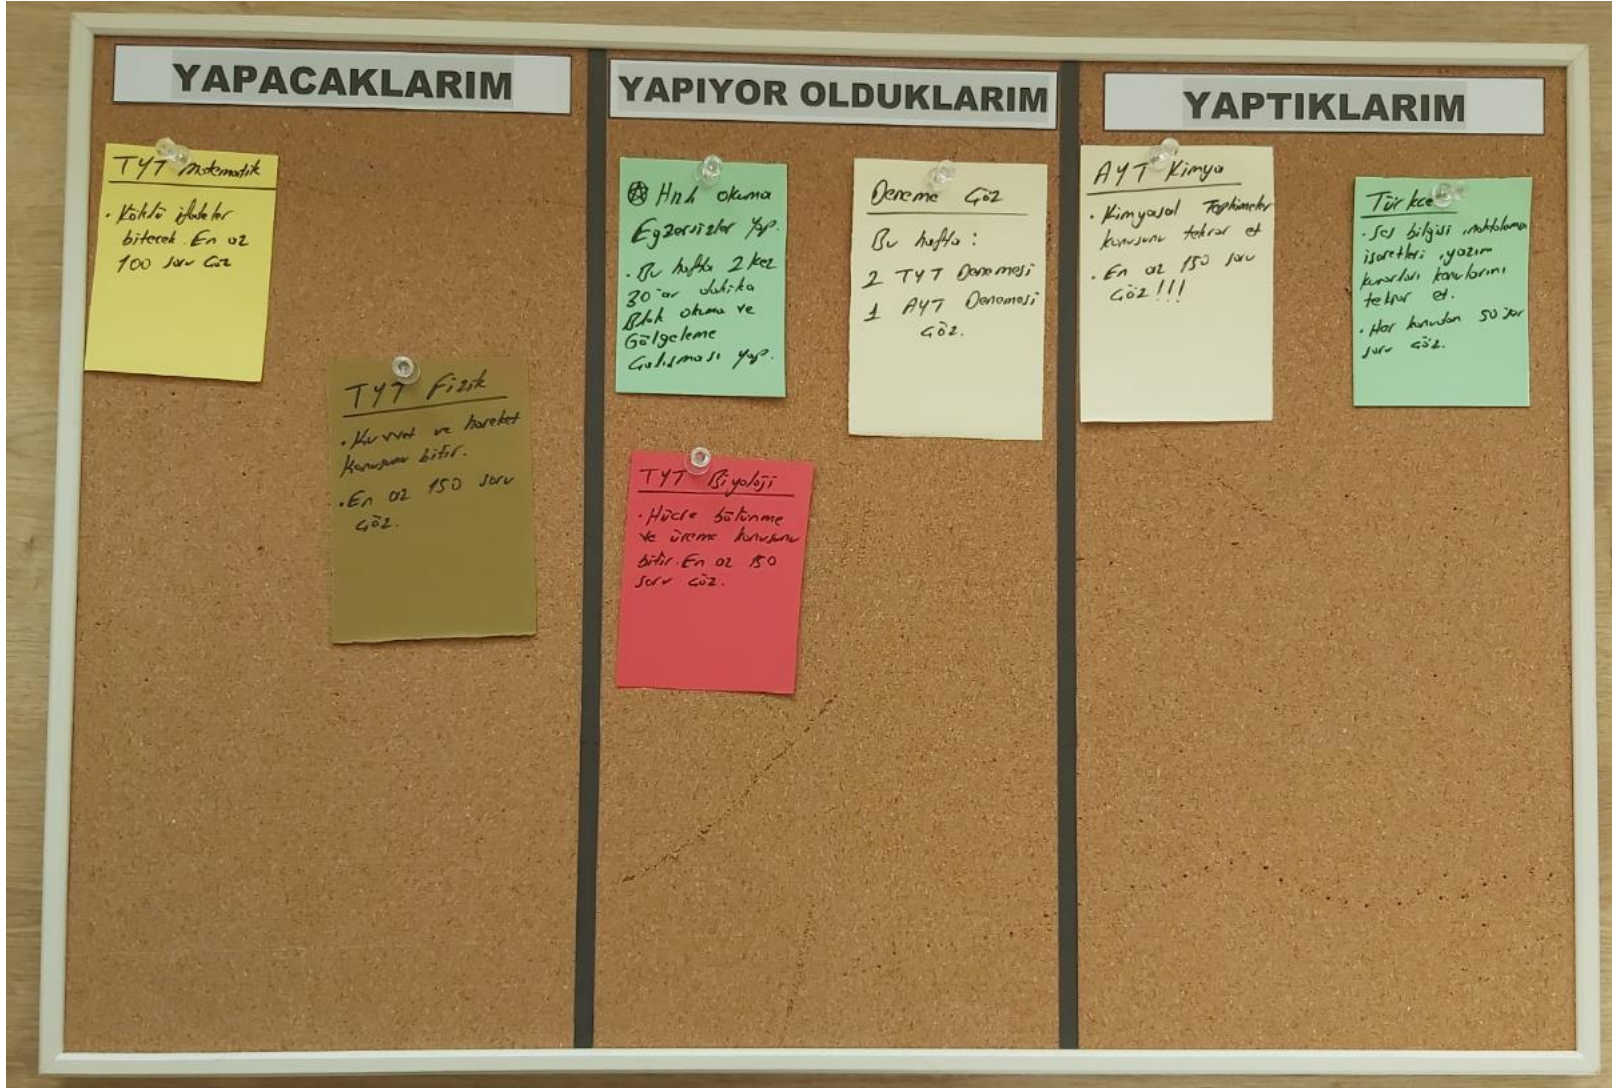 YAPACAKLARIM
TYT Matematik
• Köklü ifadeler
bitecek. En az
100 soru Çöz
TYT Fizik
• Kuvvet ve hareket
Konusunu bitir.
• En az 150 soru
Çöz.
YAPIYOR OLDUKLARIM
Hızlı okuma
Egzersizler Yap.
• Bu hafta 2 kez
30'ar dakika
Blok okuma ve
Gölgeleme
Çalışması Yap.
Deneme Çöz
Bu hafta:
2 TYT Denemesi
1 AYT Denemesi
Çöz.
TYT Biyoloji
• Hücre bölünme
ve üreme konusunu
bitir. En az 150
soru Çöz.
YAPTIKLARIM
AYT Kimya
• Kimyasal Tepkimeler
konusunu tekrar et
• En az 150 soru
Çöz!!!
Türkçe
• Ses bilgisi, noktalama
işaretleri, yazım
kuralları konularını
tekrar et.
• Her konudan 50'şer
soru çöz.